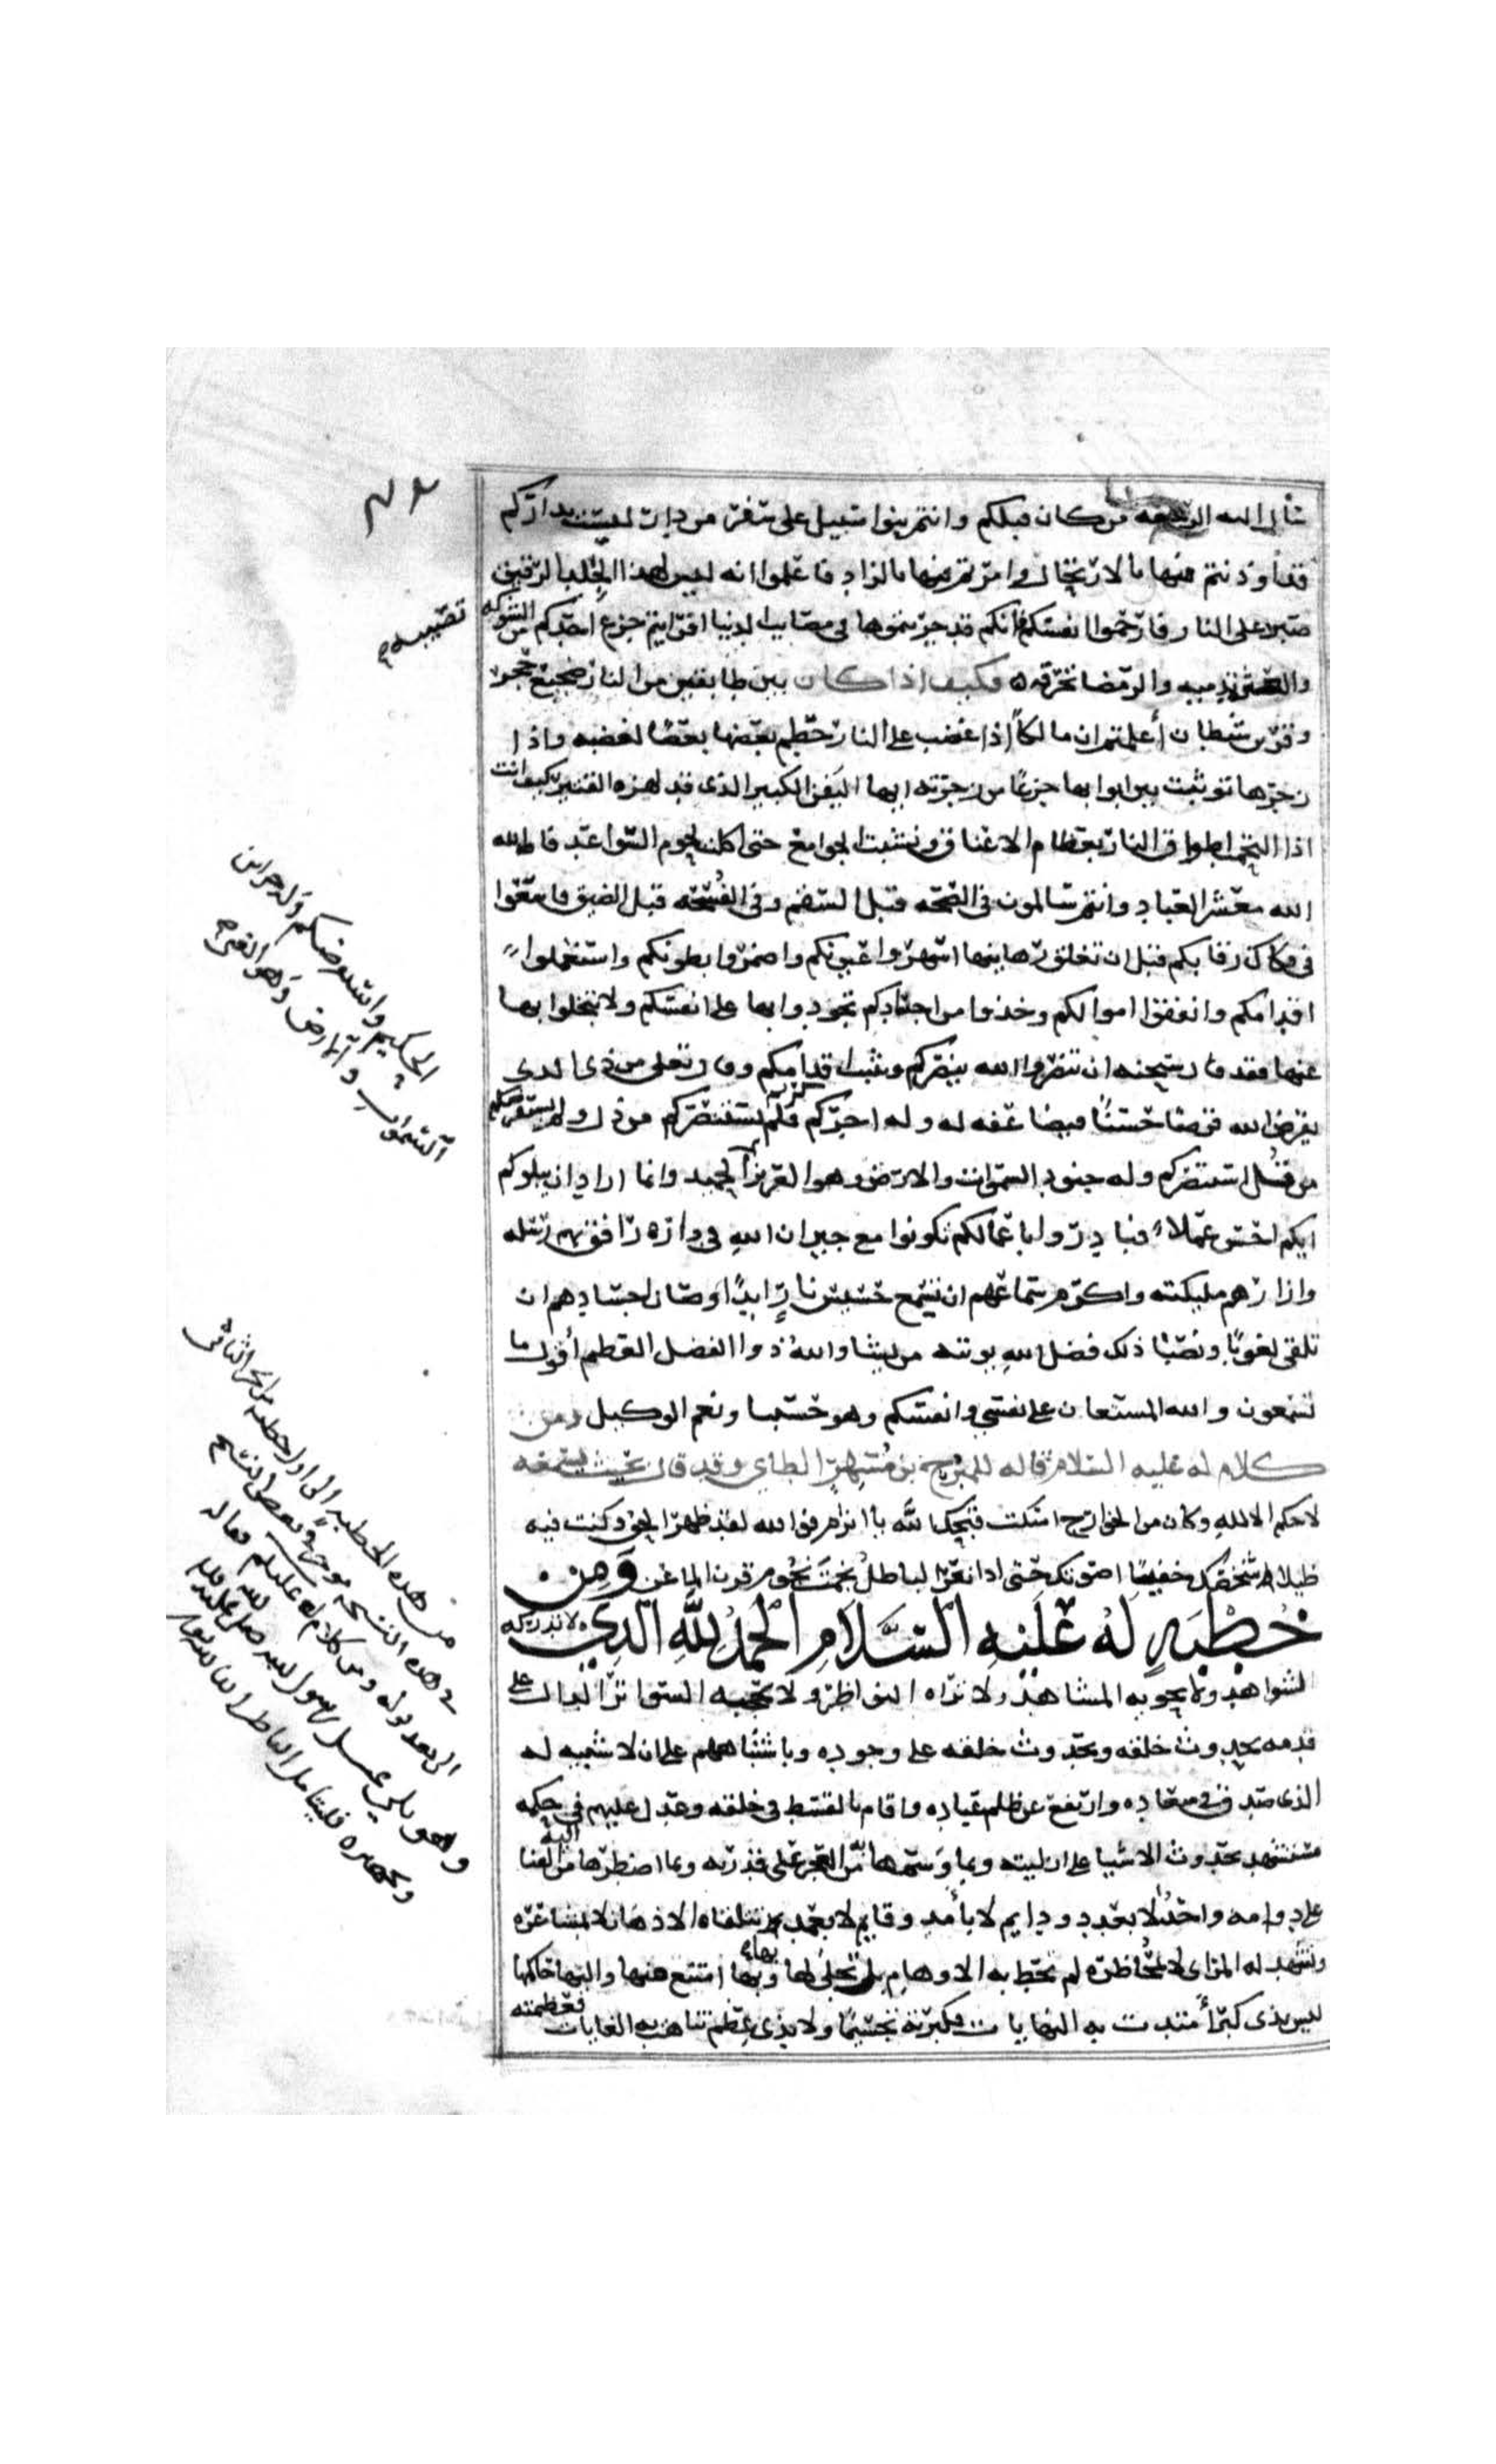 سأل الله الرجعه من كان قبلكم وانتم بنوا سبيل على سفر من دار ليست بداركم
قد اوذنتم منها بالارتحال وامرتم فيها بالزاد فاعلموا انه ليس لهذا الجلد الرقيق
صبر على النار فارحموا انفسكم فانكم قد جربتموها في مصايب الدنيا افرايتم جزع احدكم من الشوكه
تصيبه
والعثره تدميه والرمضا تحرقه فكيف اذا كان بين طابقين من النار ضجيع حجر
وقرين شيطان أعلمتم ان مالكاً اذا غضب على النار حطم بعضها بعضًا لغضبه واذا
زجرها توثبت بين ابوابها جزعًا من زجرته ايها اليفن الكبير الذي قد لهزه القتير كيف انت
اذا التحمت اطواق النار بعظام الاعناق ونشبت الجوامع حتى اكلت لحوم السواعد فالله
الله معشر العباد وانتم سالمون في الصحه قبل السقم وفي الفسحه قبل الضيق فاسعوا
في فكاك رقابكم قبل ان تغلق رهاينها اسهروا عيونكم واضمروا بطونكم واستعملوا
اقدامكم وانفقوا اموالكم وخذوا من اجسادكم تجودوا بها على انفسكم ولا تبخلوا بها
عنها فقد قال سبحنه ان تنصروا الله ينصركم ويثبت اقدامكم وقال تعلى من ذي الذي
يقرض الله قرضا حسنًا فيضاعفه له وله اجر كريم فلم يستنصركم من ذل ولم يستقرضكم
من قل استنصركم وله جنود السموات والارض وهو العزيز الحكيم واستقرضكم وله خزاين
السموات والارض وهو الغني الحميد وانما اراد ان يبلوكم
ايكم احسن عملا فبادروا باعمالكم تكونوا مع جيران الله في داره رافق بهم رسله
وازارهم مليكته واكرم سماعهم ان تسمع حسيس نارٍ ابدًا وصان اجسادهم ان
تلقى لغوبًا ونصبًا ذلك فضل الله يوتيه من يشا والله ذوا الفضل العظيم أقول ما
تسمعون والله المستعان على نفسي وانفسكم وهو حسبنا ونعم الوكيل ومن
كلام له عليه السلام قاله للبرج بن مُسهر الطاي وقد قال بحيث يسمعه
لا حكم الا لله وكان من الخوارج اسكت قبحك الله يا اثرم فوالله لقد ظهر الحق وكنت فيه
ضيلا شخصك خفيًا صوتك حتى اذا نعر الباطل نجمت نجوم قرن الماعز وَمِن
خُطْبَهٍ لَهُ عَلَيْهِ السَّلَامِ الْحَمْدُ لِلَّهِ الَّذِي لا تدركه
الشواهد ولا تحويه المشاهد ولا تراه النواظر ولا تحجبه السواتر الدال على
قدمه بحدوث خلقه وبحدوث خلقه على وجوده وباشتباههم على ان لا شبيه له
الذي صدق في ميعاده وارتفع عن ظلم عباده واقام بالقسط في خلقه وعدل عليهم في حكمه
مستشهد بحدوث الاشيا على ازليته وبما وَسمها به من العجز على قدرته وبما اضطرها اليه من الفنا
على دوامه واحدٌ لا بعدد ودايم لا بأمد وقايم لا بعمد تتلقاه الاذهان لا بمشاعره
وتشهد له المراي لا بمحاضره لم تحط به الاوهام بل تجلى لها بها وبها امتنع منها واليها حاكمها
ليس بذي كبر أمتدت به النهايات فكبرته تجسيمًا ولا بذي عِظم تناهت به الغايات فعظمته
من هذه الخطبه الى اول خطبه
في هذه النسخه وبعض النسخ
الى بعد قوله ومن كلام له عليه السلم قاله
وهو يلي غسل رسول الله صلى الله عليه
وتجهيزه